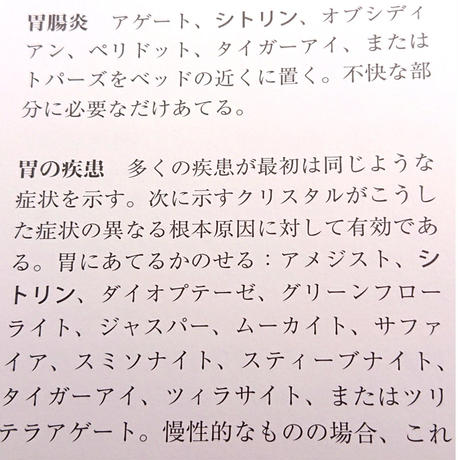 胃腸炎　アゲート、シトリン、オブシディ
アン、ペリドット、タイガーアイ、または
トパーズをベッドの近くに置く。不快な部
分に必要なだけあてる。
胃の疾患　多くの疾患が最初は同じような
症状を示す。次に示すクリスタルがこうし
た症状の異なる根本原因に対して有効であ
る。胃にあてるかのせる：アメジスト、シ
トリン、ダイオプテーゼ、グリーンフロー
ライト、ジャスパー、ムーカイト、サファ
イア、スミソナイト、スティーブナイト、
タイガーアイ、ツィラサイト、またはツリ
テラアゲート。慢性的なものの場合、これ